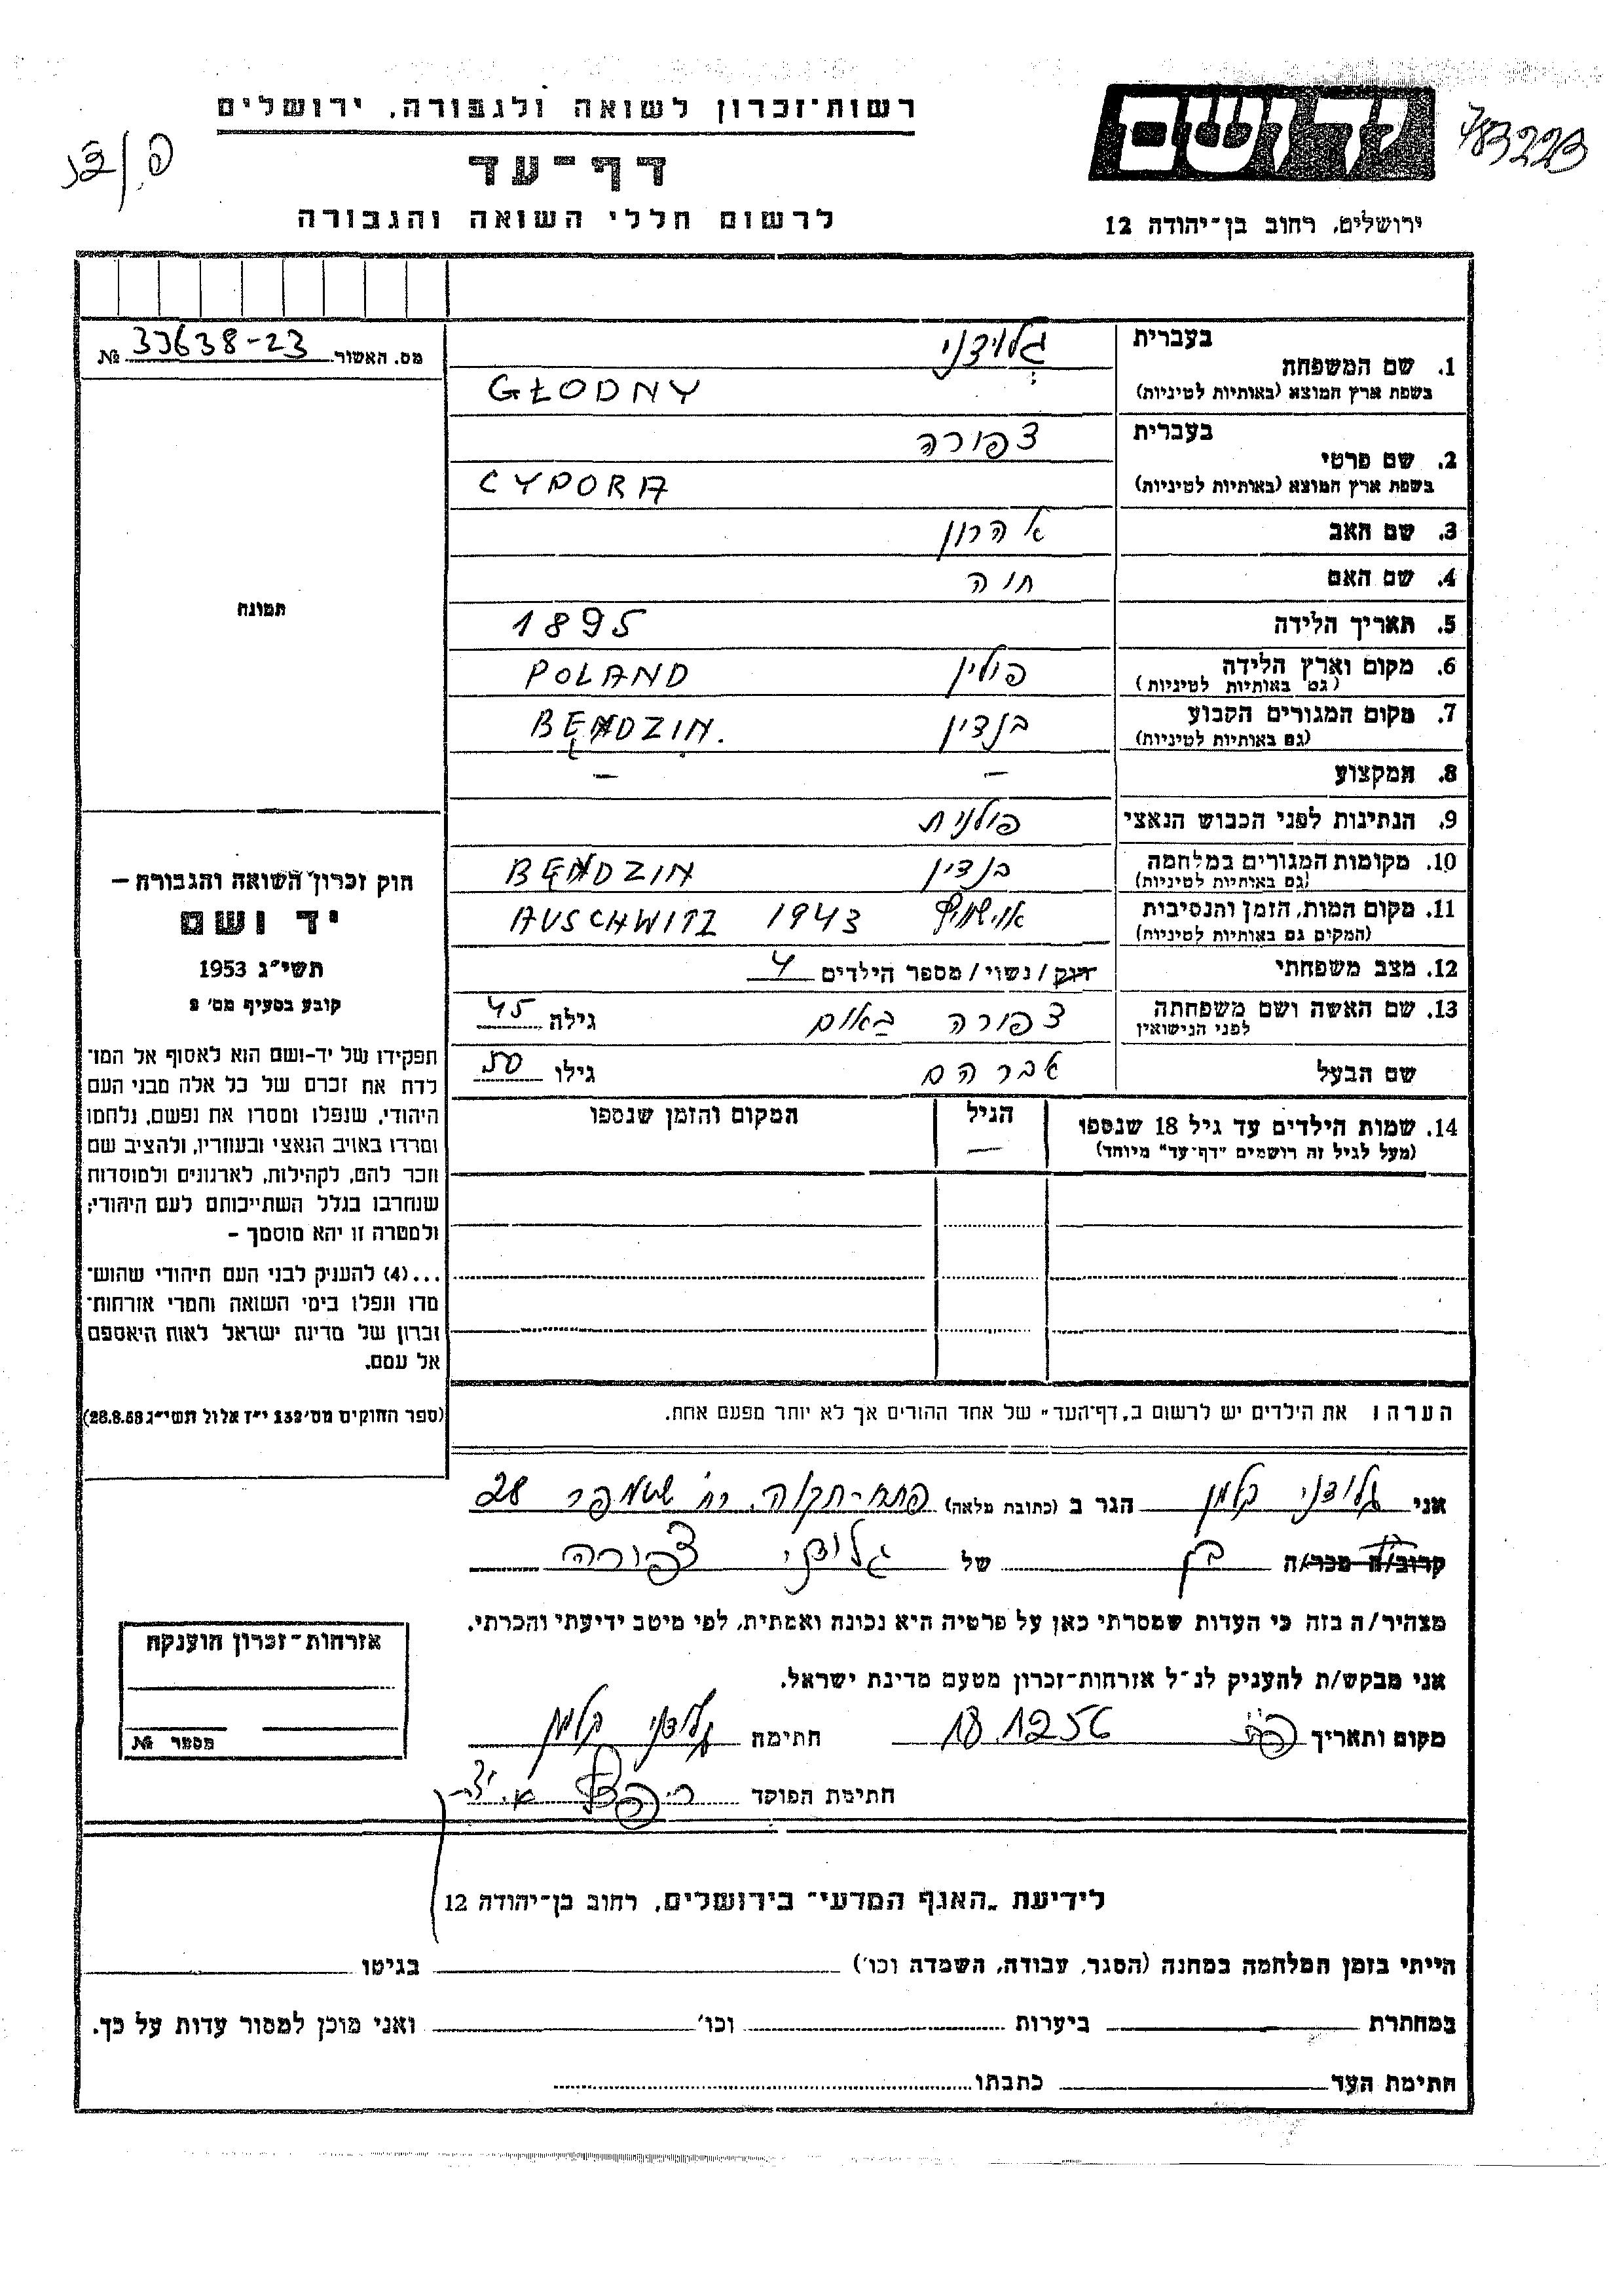 רשות־זכרון לשואה ולגבורה, ירושלים
דף־עד
לרשום חללי השואה והגבורה
יד ושם
783223
ירושלים, רחוב בן־יהודה 12
מס. האשור 33638-23 №
תמונה
1. שם המשפחה בעברית גלודני
בשפת ארץ המוצא (באותיות לטיניות) GŁODNY
2. שם פרטי בעברית צפורה
בשפת ארץ המוצא (באותיות לטיניות) CYPORA
3. שם האב אהרון
4. שם האם חוה
5. תאריך הלידה 1895
6. מקום וארץ הלידה פולין POLAND
(גם באותיות לטיניות)
7. מקום המגורים הקבוע בנדין BENDZIN.
(גם באותיות לטיניות)
8. המקצוע — —
9. הנתינות לפני הכבוש הנאצי פולנית
10. מקומות המגורים במלחמה בנדין BENDZIN
(גם באותיות לטיניות)
11. מקום המות, הזמן והנסיבות אושויץ 1943 AUSCHWITZ
(המקום גם באותיות לטיניות)
12. מצב משפחתי רווק / נשוי / מספר הילדים 4
13. שם האשה ושם משפחתה לפני הנישואין צפורה באום גילה 45
שם הבעל אברהם גילו 50
14. שמות הילדים עד גיל 18 שנספו הגיל המקום והזמן שנספו
(מעל לגיל זה רושמים "דף־עד" מיוחד) —
חוק זכרון השואה והגבורה —
יד ושם
תשי"ג 1953
קובע בסעיף מס' 2
תפקידו של יד-ושם הוא לאסוף אל המו־
לדת את זכרם של כל אלה מבני העם
היהודי, שנפלו ומסרו את נפשם, נלחמו
ומרדו באויב הנאצי ובעוזריו, ולהציב שם
וזכר להם, לקהילות, לארגונים ולמוסדות
שנחרבו בגלל השתייכותם לעם היהודי;
ולמטרה זו יהא מוסמך –
...(4) להעניק לבני העם היהודי שהוש־
מדו ונפלו בימי השואה והמרי אזרחות־
זכרון של מדינת ישראל לאות היאספם
אל עמם.
(ספר החוקים מס' 132 י"ז אלול תשי"ג 28.8.53)
הערה: את הילדים יש לרשום ב"דף־העד" של אחד ההורים אך לא יותר מפעם אחת.
אני גלודני קלמן הגר ב (כתובת מלאה) פתח-תקוה, רח' שטמפר 28
קרוב/ה מכר/ה בן של גלודני צפורה
מצהיר/ה בזה כי העדות שמסרתי כאן על פרטיה היא נכונה ואמתית, לפי מיטב ידיעתי והכרתי.
אני מבקש/ת להעניק לנ"ל אזרחות־זכרון מטעם מדינת ישראל.
מקום ותאריך 18.12.56 חתימה גלודני קלמן
חתימת הפוקד
אזרחות־זכרון הוענקה
מספר №
לידיעת "האגף המדעי" בירושלים, רחוב בן־יהודה 12
הייתי בזמן המלחמה במחנה (הסגר, עבודה, השמדה וכו') בגיטו
במחתרת ביערות וכו' ואני מוכן למסור עדות על כך.
חתימת העד כתבתו